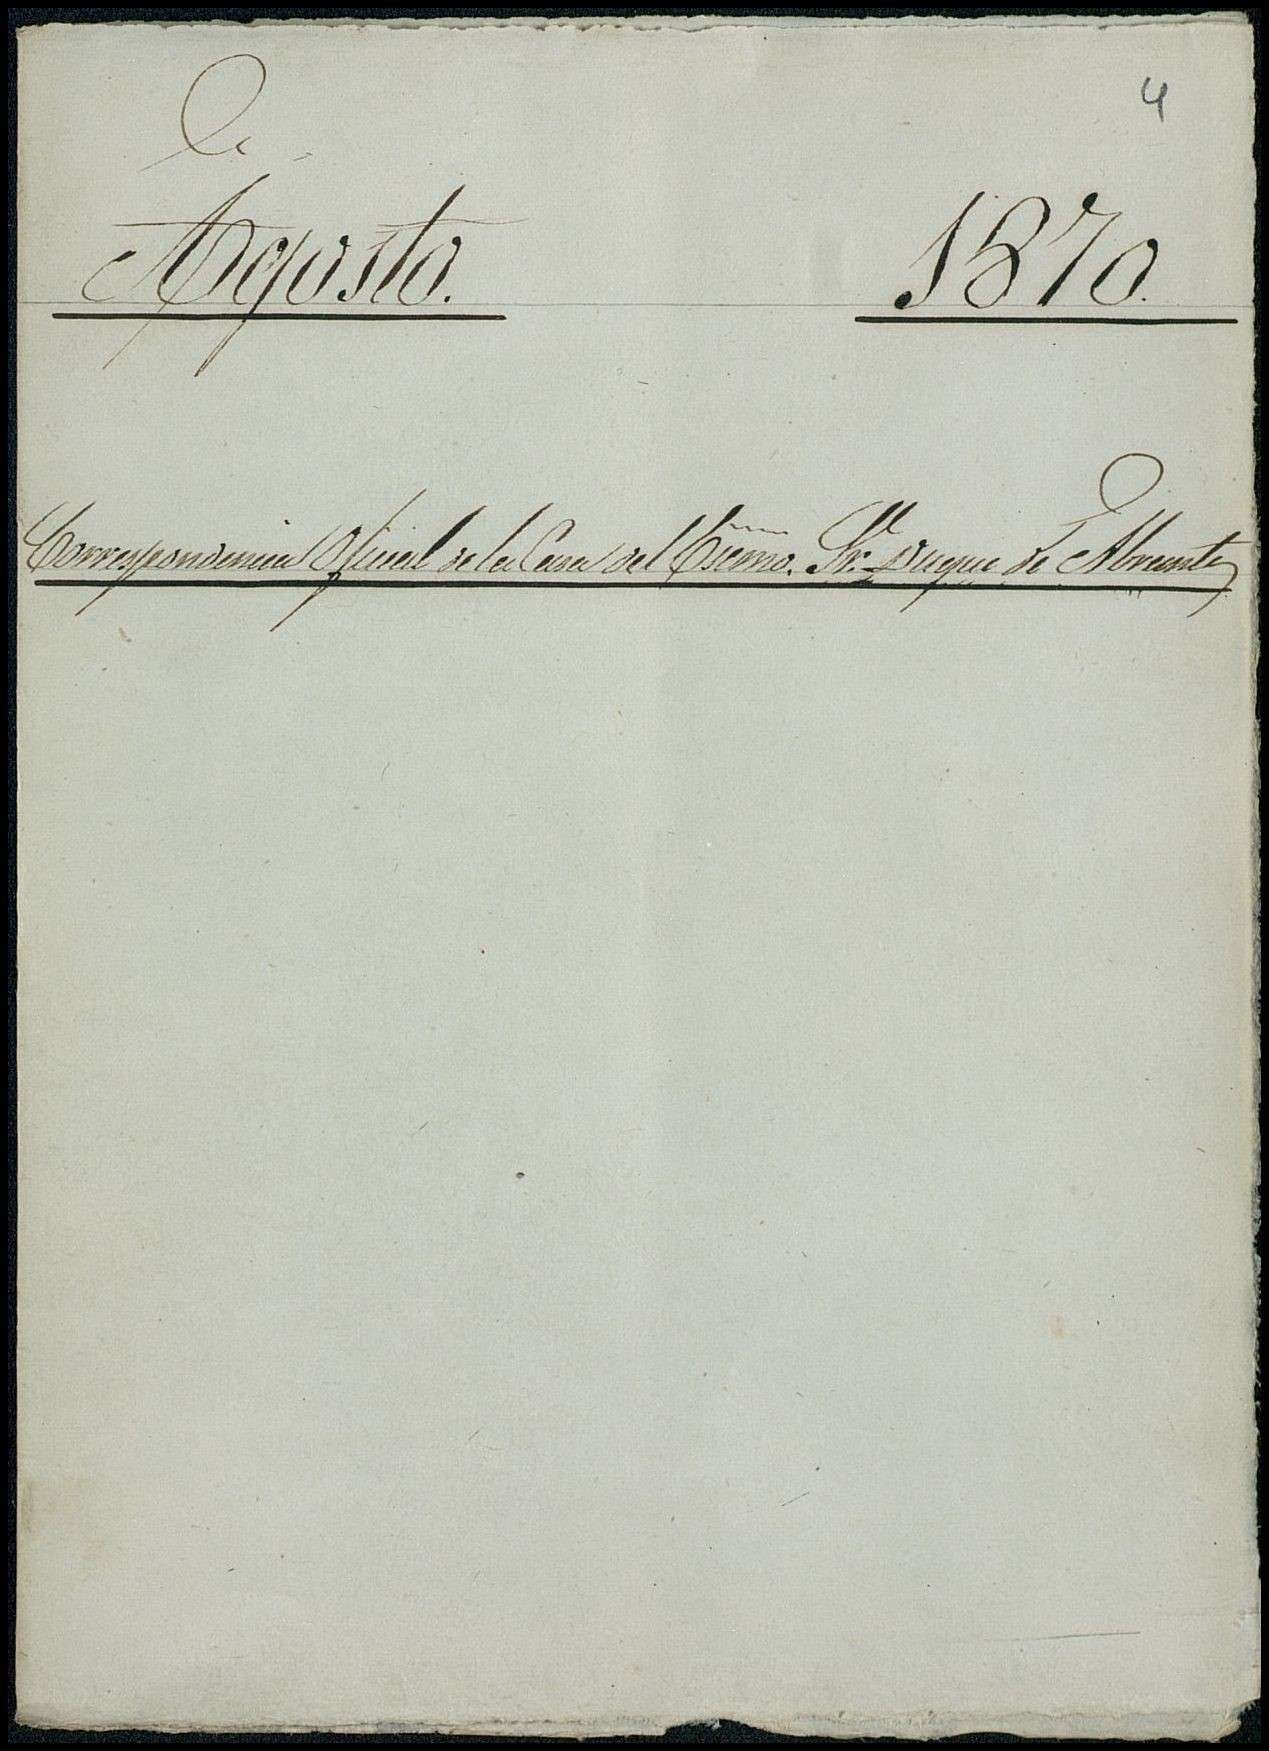 4
Agosto. 1870.
Correspondencia Oficial de la Casa del Escmo. Sr. Duque de Abrantes